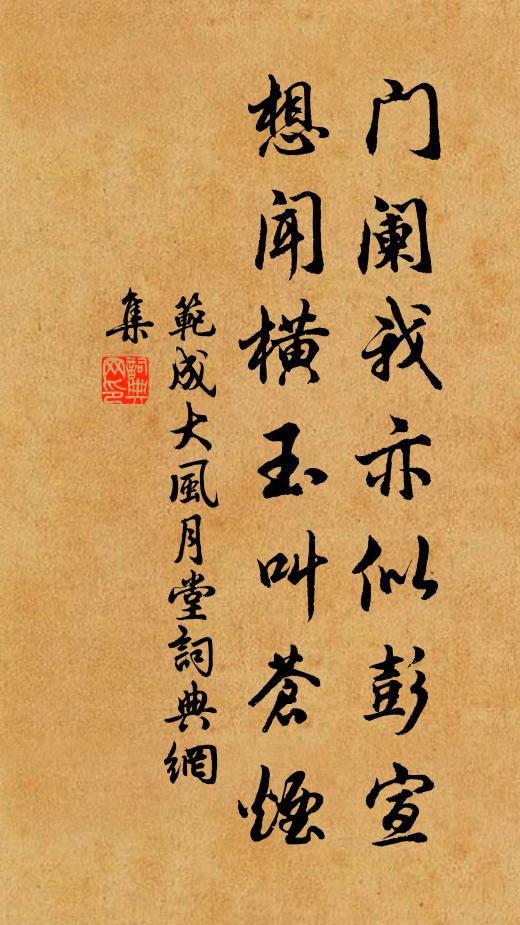 门阑我亦似彭宣
想闻横玉叫苍烟
範成大風月堂詞典網
集
詞典网印